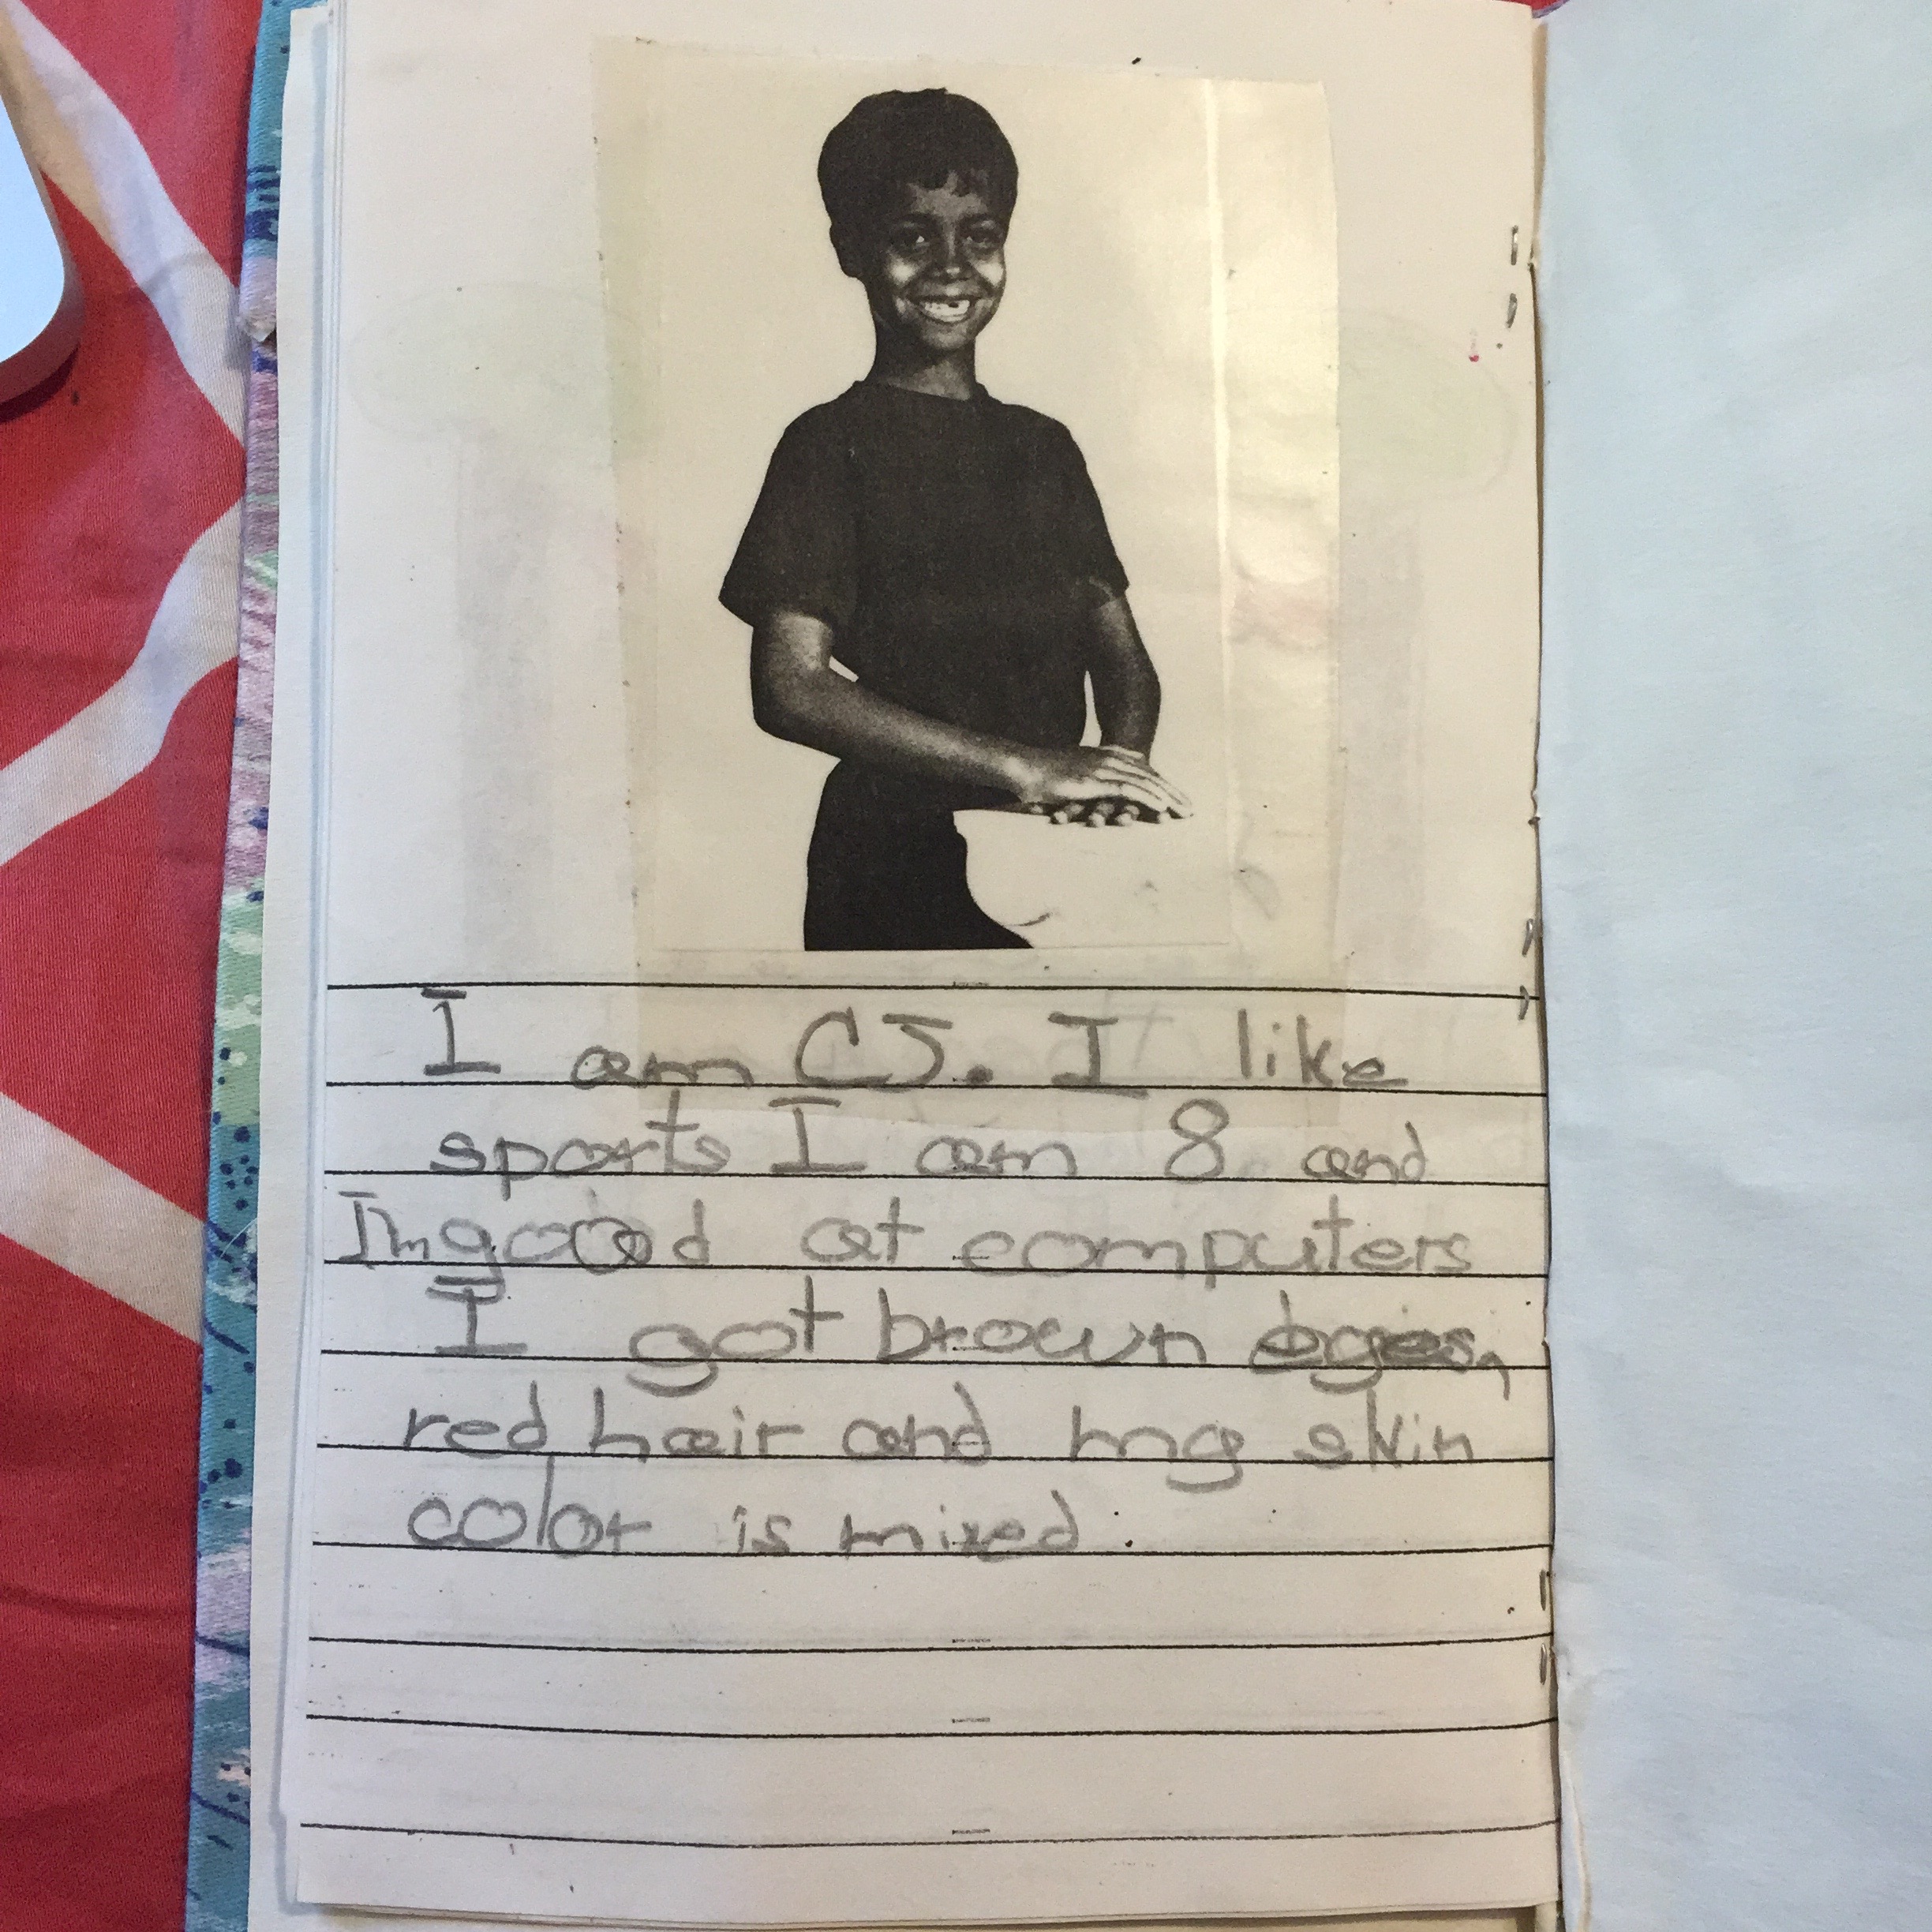 I am CJ. I like
sports I am 8 and
Im good at computers
I got brown eyes,
red hair and my skin
color is mixed.